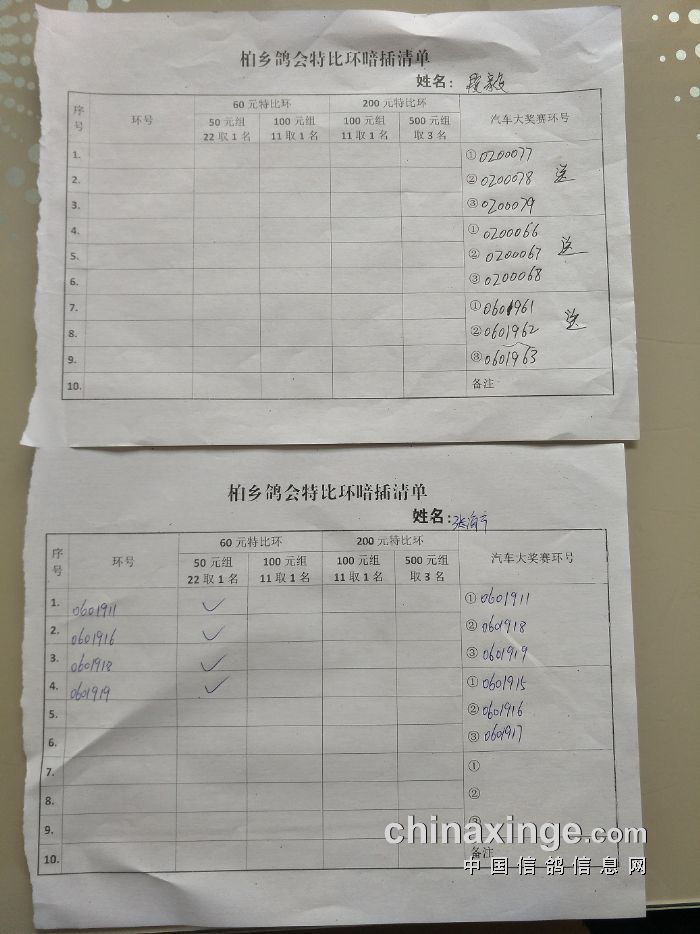 柏乡鸽会特比环暗插清单
姓名：
序号 环号 60元特比环 200元特比环 汽车大奖赛环号
50元组 22取1名 100元组 11取1名 100元组 11取1名 500元组 取3名
1. ①0200077
2. ②0200078 送
3. ③0200079
4. ①0200066
5. ②0200067 送
6. ③0200068
7. ①0601961
8. ②0601962 送
9. ③0601963
10. 备注
柏乡鸽会特比环暗插清单
姓名：
序号 环号 60元特比环 200元特比环 汽车大奖赛环号
50元组 22取1名 100元组 11取1名 100元组 11取1名 500元组 取3名
1. 0601911 ✓ ①0601911
2. 0601916 ✓ ②0601918
3. 0601918 ✓ ③0601919
4. 0601919 ✓ ①0601915
5. ②0601916
6. ③0601917
7. ①
8. ②
9. ③
10. 备注
chinaxinge.com
中国信鸽信息网